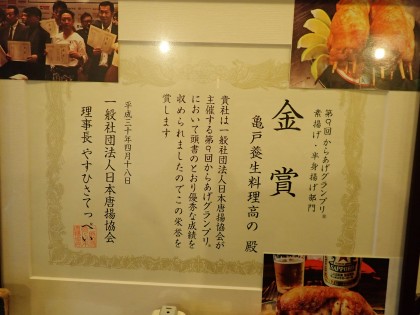 第9回 からあげグランプリ®
素揚げ・半身揚げ部門
金賞
亀戸養生料理高の 殿
貴社は一般社団法人日本唐揚協会が
主催する第9回からあげグランプリ®
において頭書のとおり優秀な成績を
収められましたのでこの栄誉を
賞します
平成三十年四月十八日
一般社団法人日本唐揚協会
理事長 やすひさてっぺい
SAPPORO